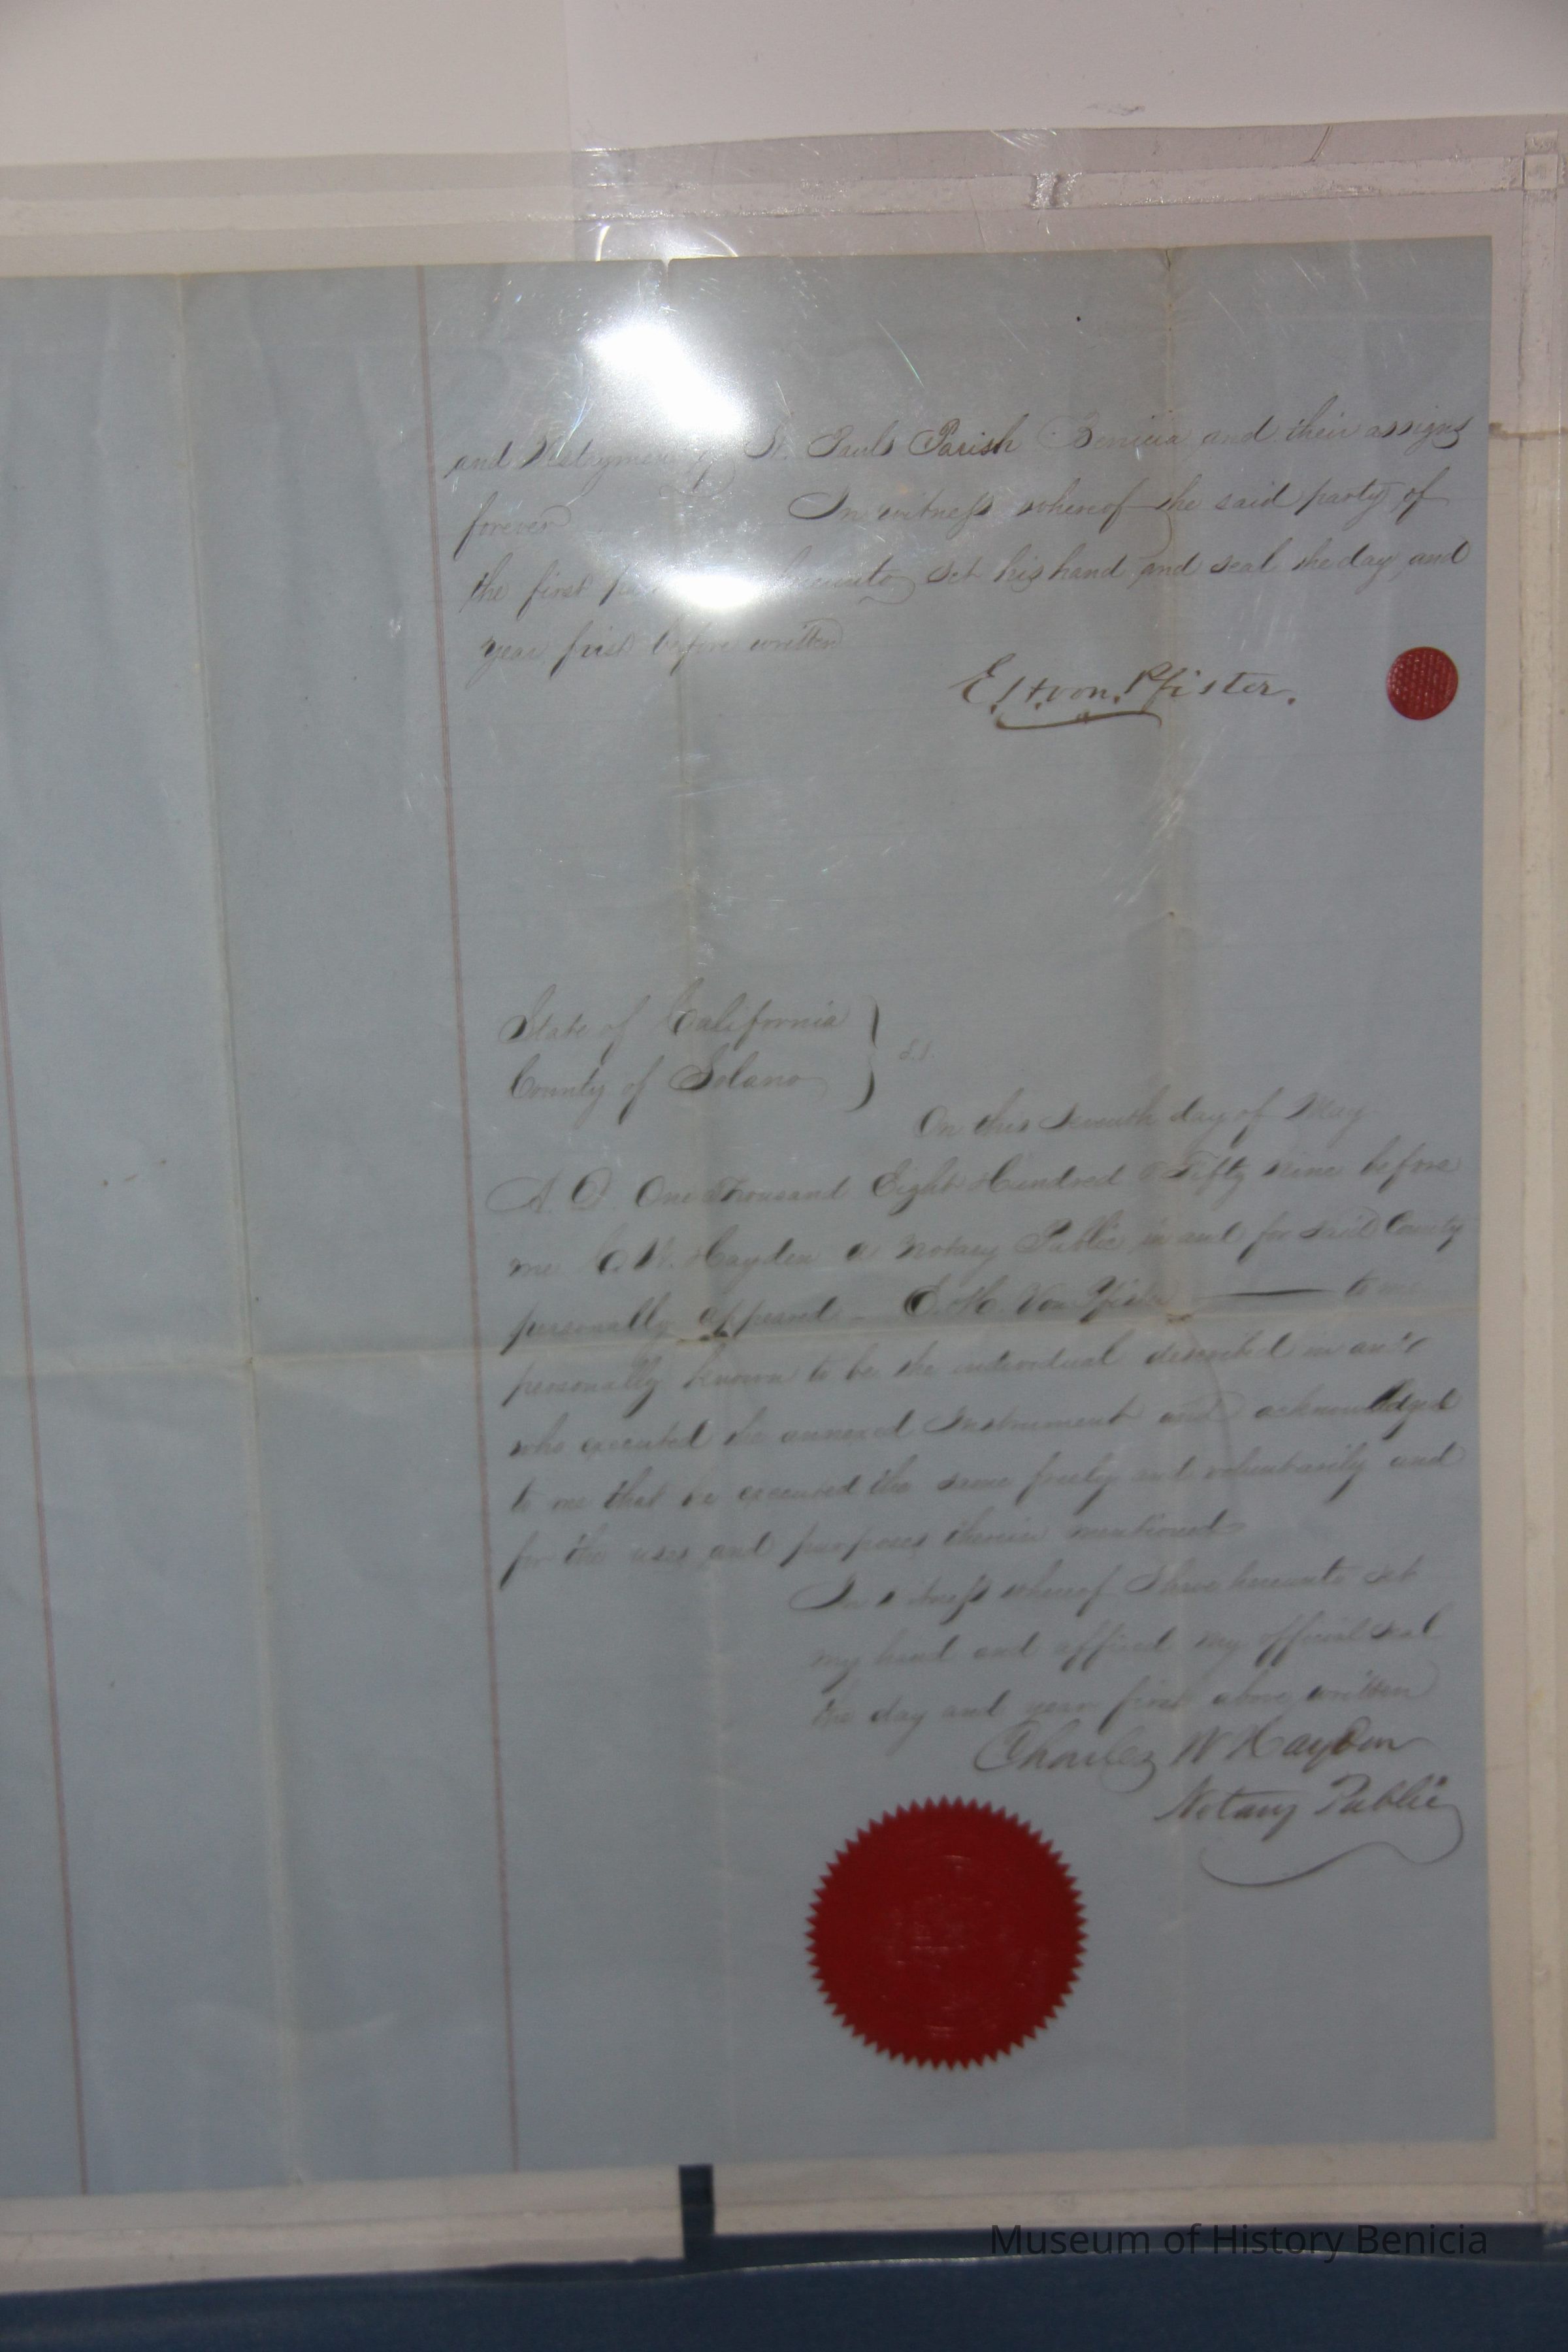 and Vestrymen of St. Pauls Parish Benicia and their assigns
forever In witness whereof the said party of
the first hereunto set his hand and seal the day and
year first before written
E. H. von Pfister.
State of California
County of Solano } S.S.
On this Seventh day of May
A. D. One Thousand Eight Hundred & Fifty nine before
me C. W. Hayden a Notary Public in and for said County
personally appeared E. H. Von Pfister to me
personally known to be the individual described in and
who executed the annexed Instrument and acknowledged
to me that he executed the same freely and voluntarily and
for the uses and purposes therein mentioned
In witness whereof I have hereunto set
my hand and affixed my official seal
the day and year first above written
Charles W Hayden
Notary Public
Museum of History Benicia